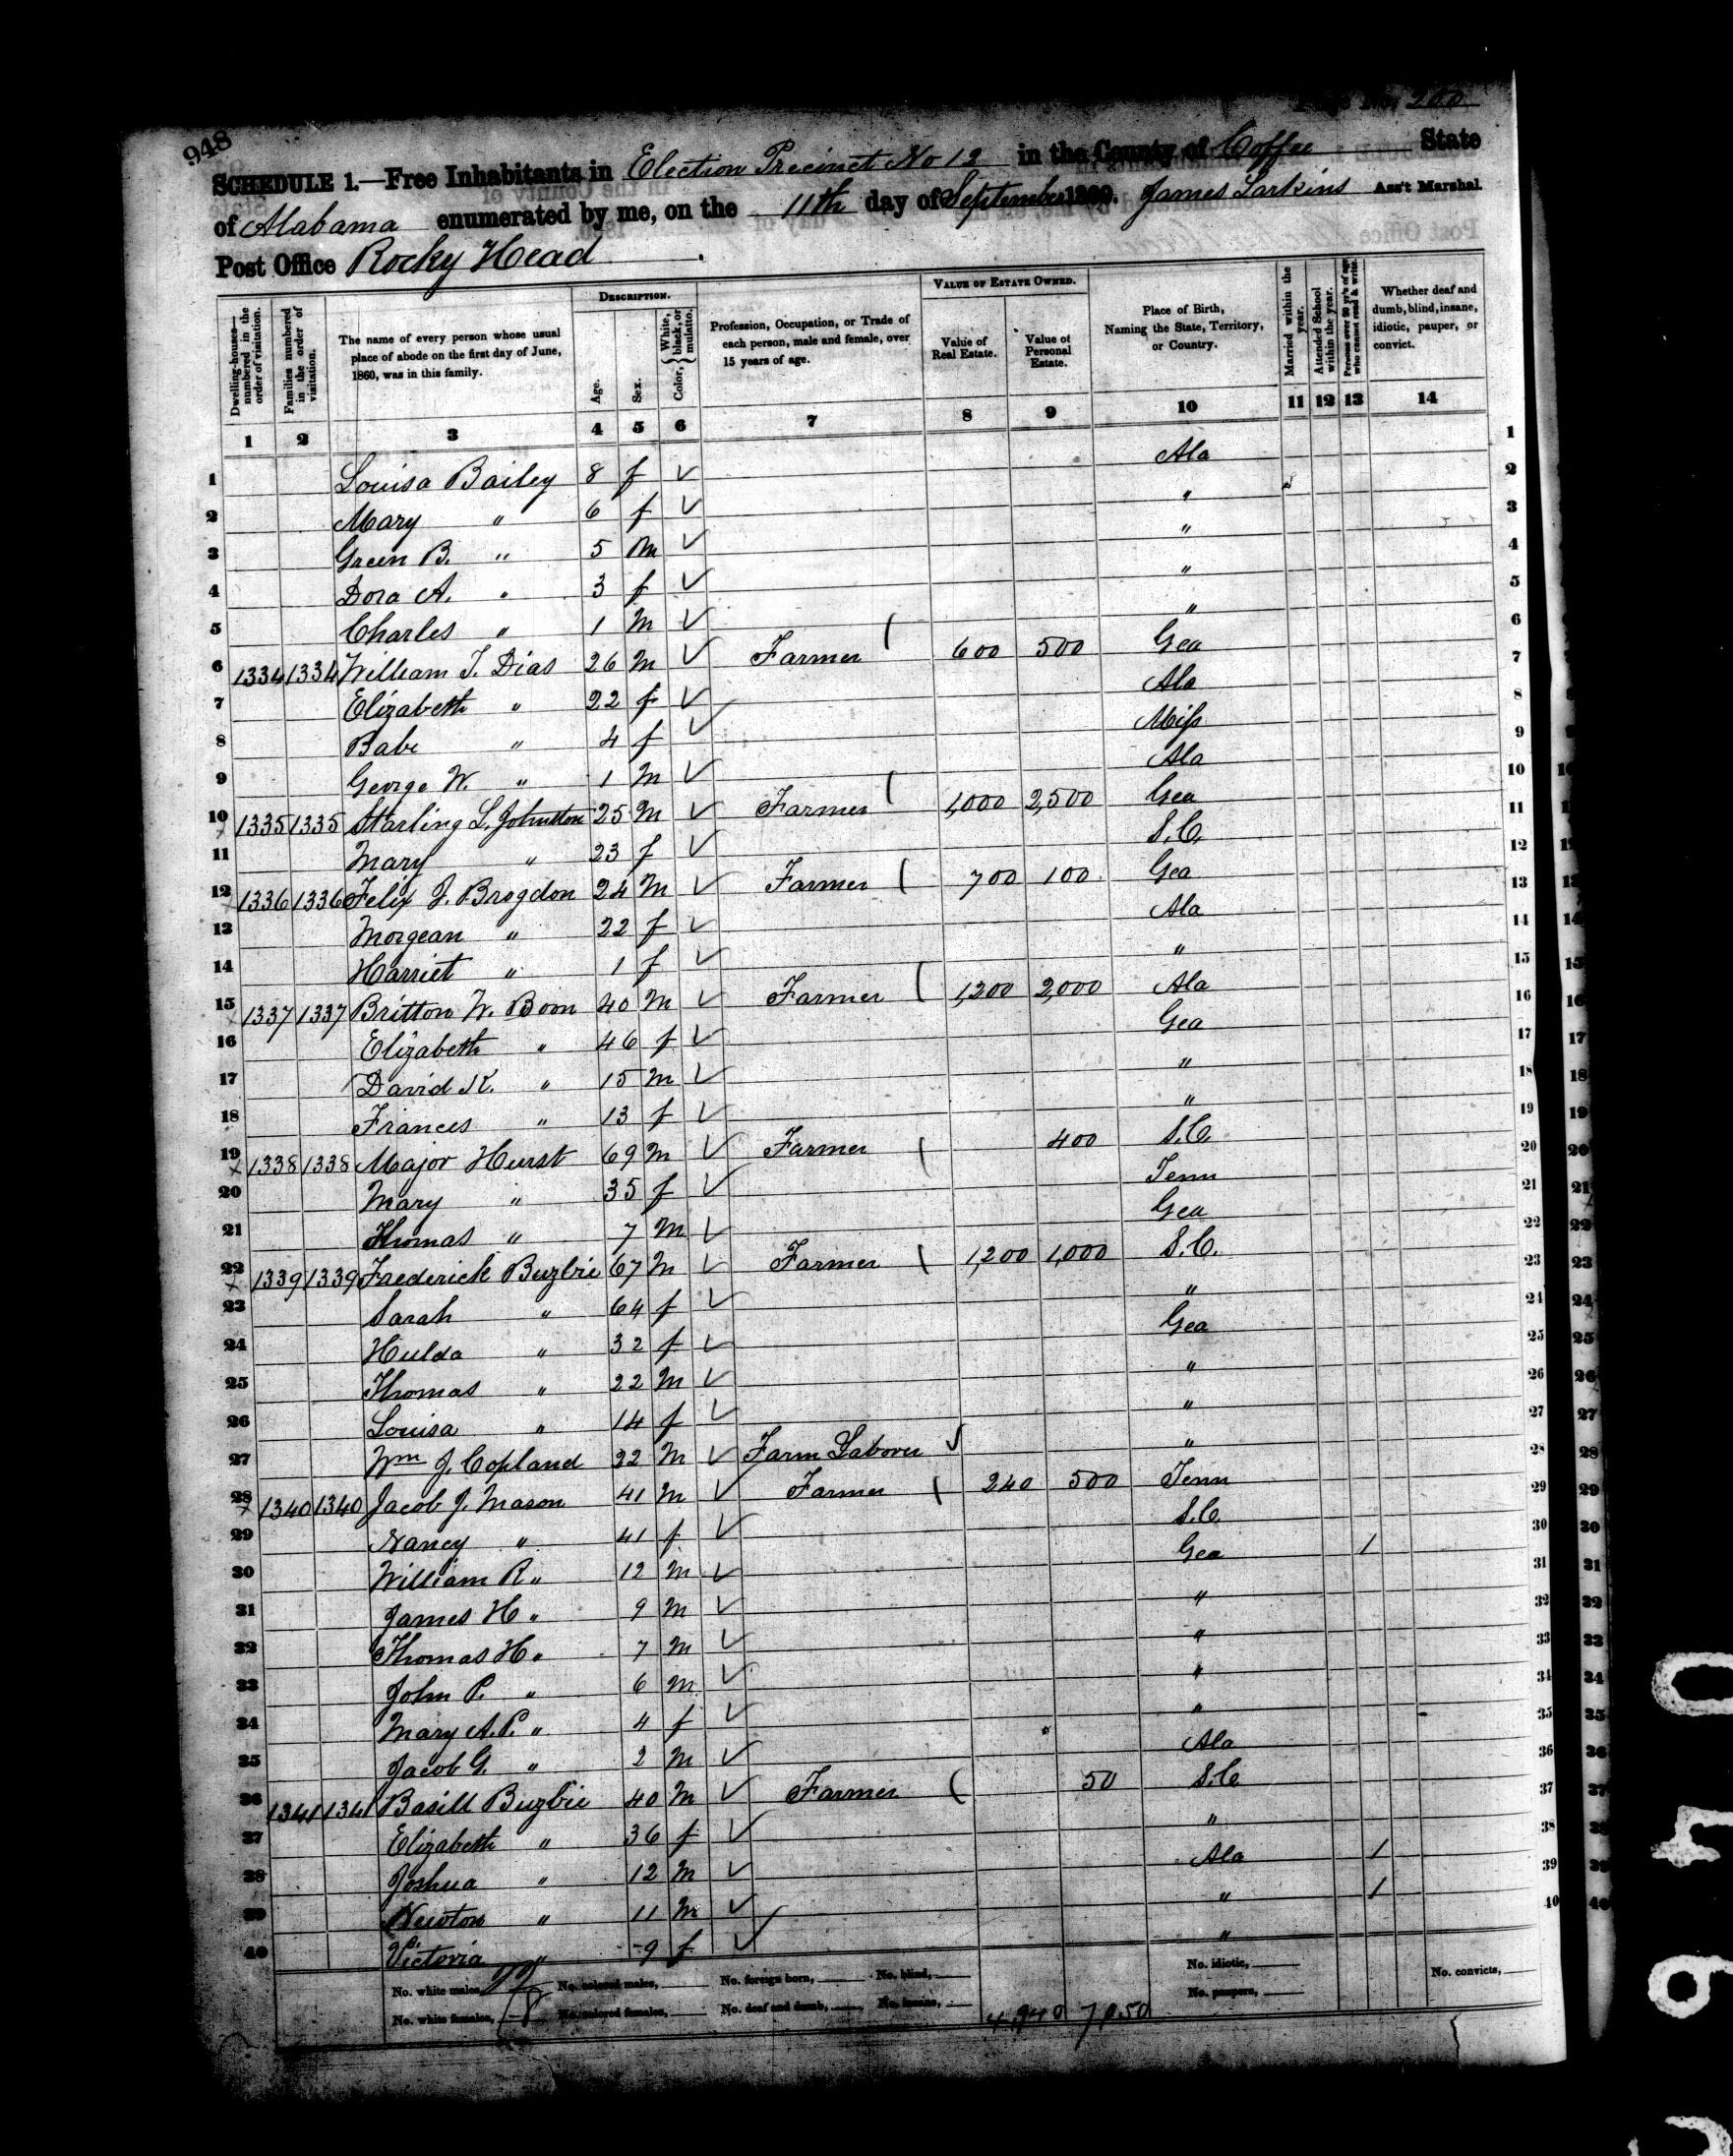 948
200
SCHEDULE 1.—Free Inhabitants in Election Precinct No 12 in the County of Coffee State
of Alabama enumerated by me, on the 11th day of September 1860. James Larkins Ass't Marshal.
Post Office Rocky Head
Dwelling-houses—numbered in the order of visitation. Families numbered in the order of visitation. The name of every person whose usual place of abode on the first day of June, 1860, was in this family. DESCRIPTION. Age. Sex. Color, {White, black, or mulatto. Profession, Occupation, or Trade of each person, male and female, over 15 years of age. VALUE OF ESTATE OWNED. Value of Real Estate. Value of Personal Estate. Place of Birth, Naming the State, Territory, or Country. Married within the year. Attended School within the year. Persons over 20 yr's of age who cannot read & write. Whether deaf and dumb, blind, insane, idiotic, pauper, or convict.
1 2 3 4 5 6 7 8 9 10 11 12 13 14
1 Louisa Bailey 8 f ✓ Ala 1
2 Mary " 6 f ✓ " 2
3 Green B. " 5 M ✓ " 3
4 Dora A. " 3 f ✓ " 4
5 Charles " 1 M ✓ " 5
6 1334 1334 William T. Dias 26 M ✓ Farmer 600 500 Gea 6
7 Elizabeth " 22 f ✓ Ala 7
8 Babe " 4 f ✓ Miss 8
9 George W. " 1 M ✓ Ala 9
10 1335 1335 Starling L. Johnston 25 M ✓ Farmer 1,000 2,500 Gea 10
11 Mary " 23 f ✓ S.C. 11
12 1336 1336 Felix J. Brogdon 24 M ✓ Farmer 700 100 Gea 12
13 Morgean " 22 f ✓ Ala 13
14 Harriet " 1 f ✓ " 14
15 1337 1337 Britton W. Boon 40 M ✓ Farmer 1,200 2,000 Ala 15
16 Elizabeth " 46 f ✓ Gea 16
17 David K. " 15 M ✓ " 17
18 Frances " 13 f ✓ " 18
19 1338 1338 Major Hurst 69 M ✓ Farmer 400 S.C. 19
20 Mary " 35 f ✓ Tenn 20
21 Thomas " 7 M ✓ Gea 21
22 1339 1339 Frederick Buzbie 67 M ✓ Farmer 1,200 1,000 S.C. 22
23 Sarah " 64 f ✓ " 23
24 Hulda " 32 f ✓ Gea 24
25 Thomas " 22 M ✓ " 25
26 Louisa " 14 f ✓ " 26
27 Wm J. Copland 22 M ✓ Farm Laborer ✓ " 27
28 1340 1340 Jacob J. Mason 41 M ✓ Farmer 240 500 Tenn 28
29 Nancy " 41 f ✓ S.C. 29
30 William R " 12 M ✓ Gea 1 30
31 James H " 9 M ✓ " 31
32 Thomas H " 7 M ✓ " 32
33 John P. " 6 M ✓ " 33
34 Mary A. P. " 4 f ✓ " 34
35 Jacob G. " 2 M ✓ Ala 35
36 1341 1341 Basill Buzbie 40 M ✓ Farmer 50 S.C. 36
37 Elizabeth " 36 f ✓ " 37
38 Joshua " 12 M ✓ Ala 1 38
39 Newton " 11 M ✓ " 1 39
40 Victoria " 9 f ✓ " 40
No. white males, 22 No. colored males, No. foreign born, No. blind, No. idiotic, No. convicts,
No. white females, 18 No. colored females, No. deaf and dumb, No. insane, 4,940 7,050 No. paupers,